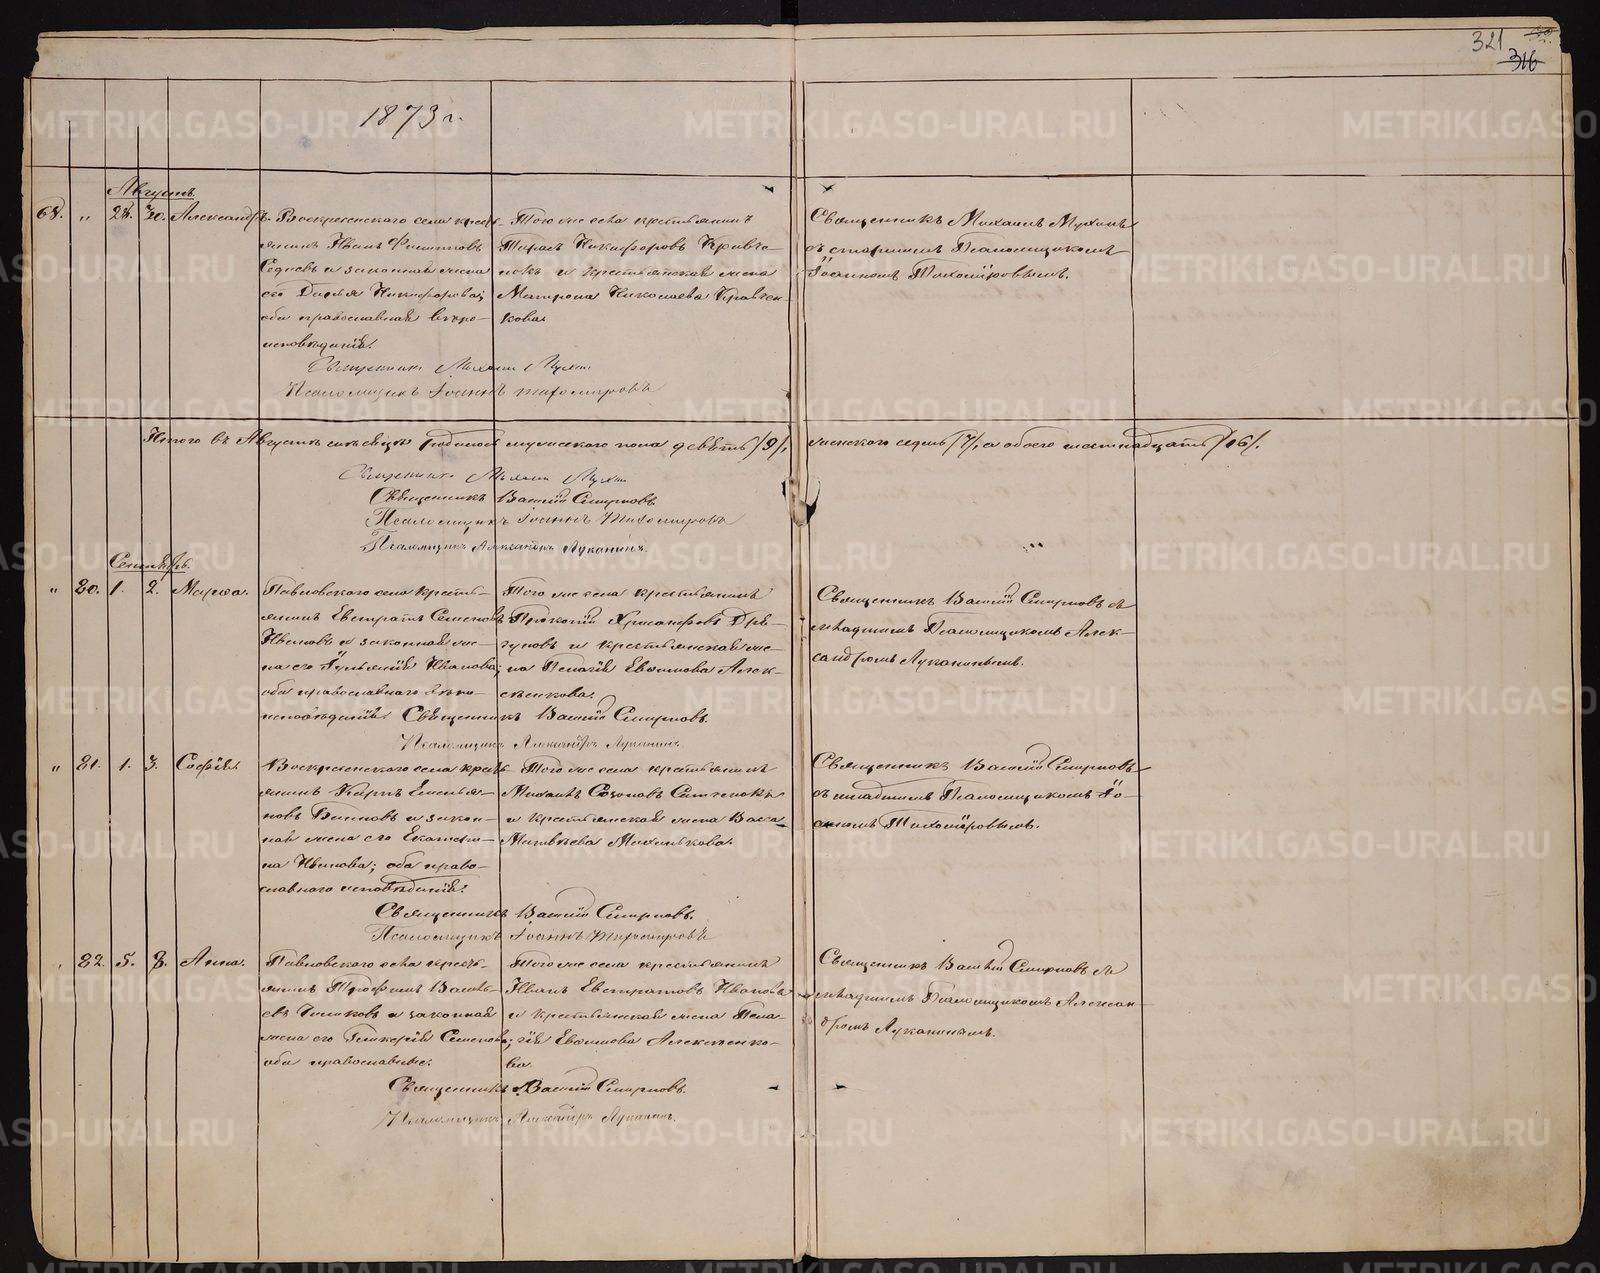 321
316
1873 г.
Августъ.
68. " 28. 30. Александръ.
Воскресенскаго села крест-
янинъ Иванъ Филиповъ
и законная жена
его Дарья Никифорова;
оба православнаго вѣро-
исповѣданія.
Тогоже села крестьянинъ
Тарасъ Никифоровъ Кравче-
нокъ и крестьянская жена
Матрона Николаева Кравчен-
кова.
Священникъ Михаилъ Мухинъ
съ старшимъ Псаломщикомъ
Іоанномъ Тихоміровымъ.
Священникъ Михаилъ Мухинъ
Псаломщикъ Іоаннъ Тихомировъ
Итого въ Августѣ мѣсяцѣ родилось мужескаго пола девѣть /9/, женскаго седмь /7/, а обоего шестнадцать /16/.
Священникъ Михаилъ Мухинъ
Священникъ Василій Смирновъ
Псаломщикъ Іоаннъ Тихомировъ
Псаломщикъ Александръ Луканинъ.
Сентябрь.
" 80. 1. 2. Марѳа.
Павловскаго села кресть-
янинъ Евстратъ Семеновъ
Ивановъ и законная же-
на его Іульянія Иванова;
оба православнаго вѣро-
исповѣданія.
Тогоже села крестьянинъ
Прокопій Хрисанфовъ
и крестьянская же-
на Пелагія Евѳимова Алек-
сѣенкова.
Священникъ Василій Смирновъ съ
младшимъ Псаломщикомъ Алек-
сандромъ Луканинымъ.
Священникъ Василій Смирновъ.
Псаломщикъ Александръ Луканинъ.
" 81. 1. 3. Софія.
Воскресенскаго села крест-
янинъ Карпъ Емелья-
новъ и закон-
ная жена его Екатери-
на Иванова; оба право-
славнаго исповѣданія.
Тогоже села крестьянинъ
Михаилъ Созоновъ
и крестьянская жена Васса
Матвѣева Михалькова.
Священникъ Василій Смирновъ
съ младшимъ Псаломщикомъ Іо-
анномъ Тихоміровымъ.
Священникъ Василій Смирновъ.
Псаломщикъ Іоаннъ Тихомировъ
82. 5. 8. Анна.
Павловскаго села кресть-
янинъ Трофимъ Василь-
евъ и законная
жена его Гликерія Семенова;
оба православные.
Тогоже села крестьянинъ
Иванъ Евстратовъ Ивановъ
и крестьянская жена Пела-
гія Евѳимова Алексѣенко-
ва.
Священникъ Василій Смирновъ съ
младшимъ Псаломщикомъ Алексан-
дромъ Луканинымъ.
Священникъ Василій Смирновъ.
Псаломщикъ Александръ Луканинъ.
METRIKI.GASO-URAL.RU